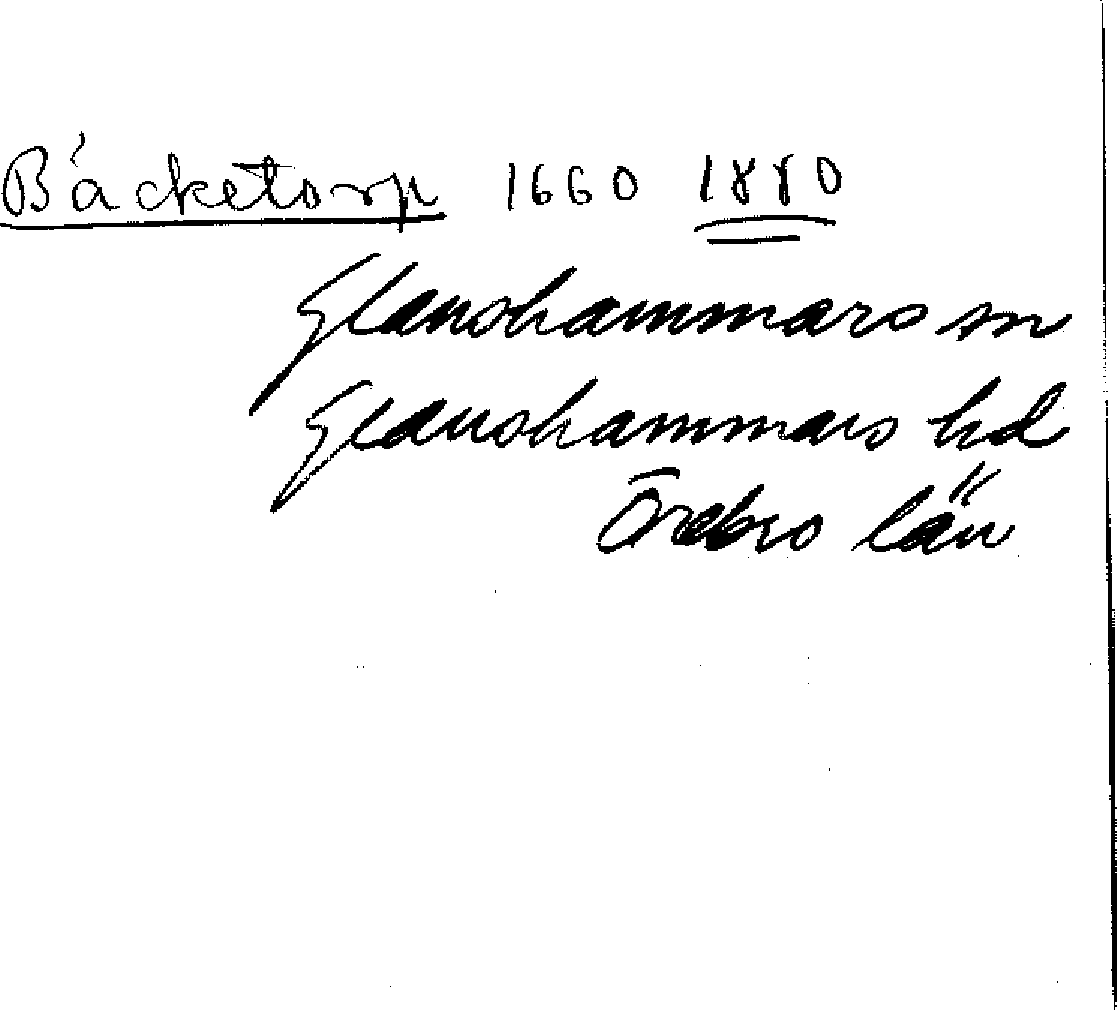 Bäcketorp 1660 1880
Glanshammars sn
Glanshammars hd
Örebro län